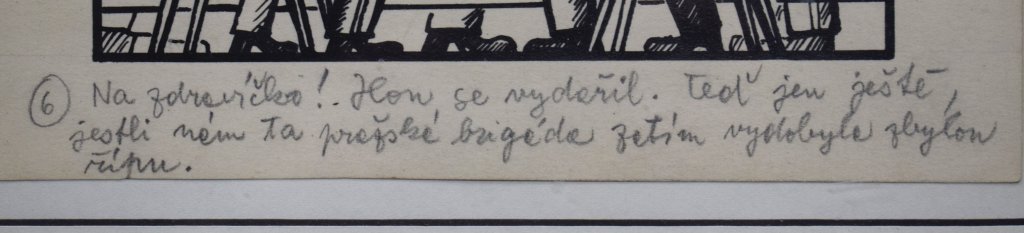 6 Na zdravíčko! Hon se vydařil. Teď jen ještě,
jestli nám ta pražská brigáda zatím vydobyla zbylou
řípu.